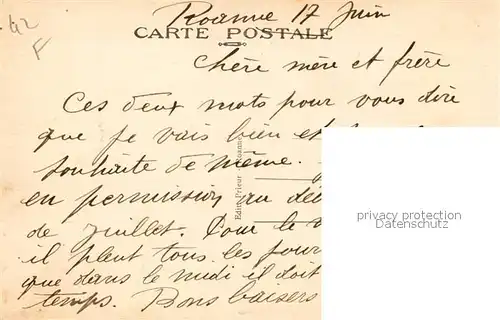 42
F
Roanne 17 Juin
CARTE POSTALE
Chère mère et frère
Ces deux mots pour vous dire
que je vais bien et
souhaite de même.
en permission au
de Juillet. Pour le
il pleut tous les jour
que dans le midi il doit
temps. Bons baisers
Edit. Prieur - Roanne
privacy protection
Datenschutz